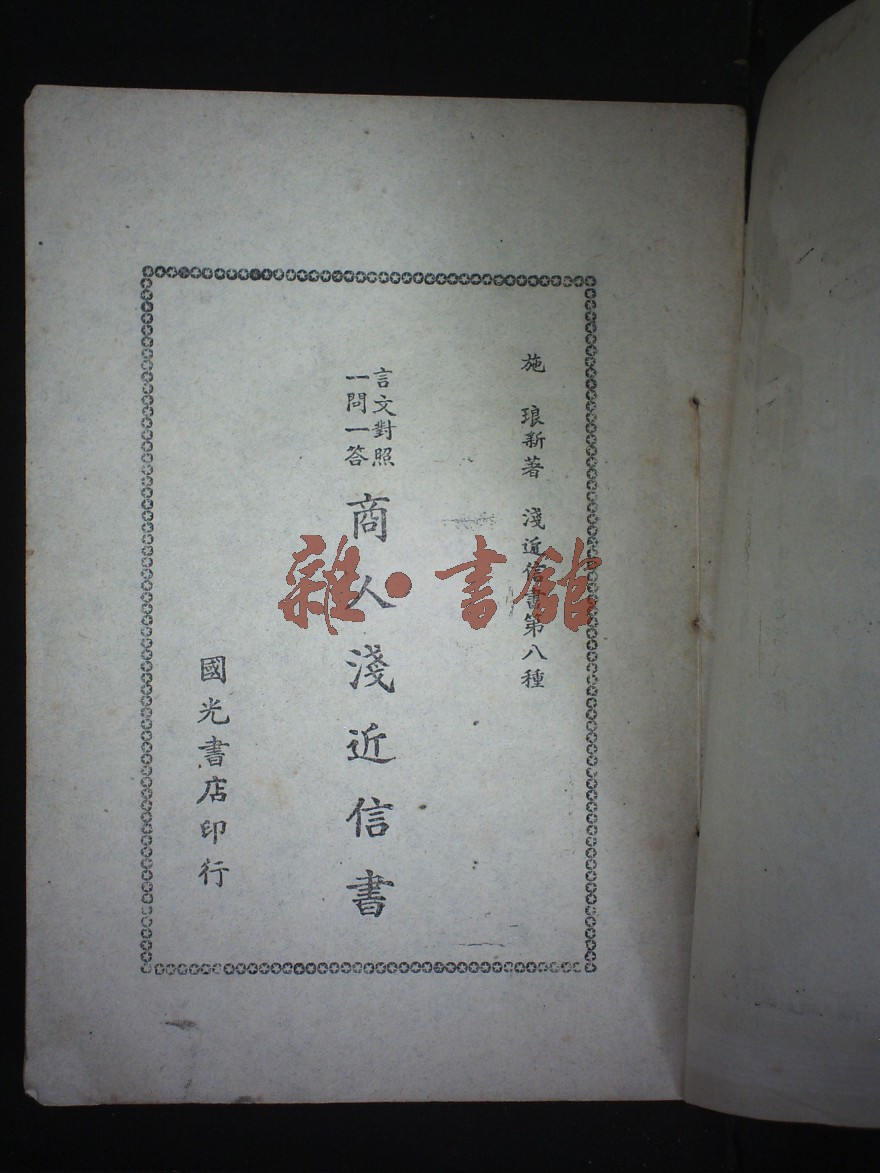 施琅新著 淺近信書第八種
言文對照
一問一答
商人淺近信書
國光書店印行
雜·書館